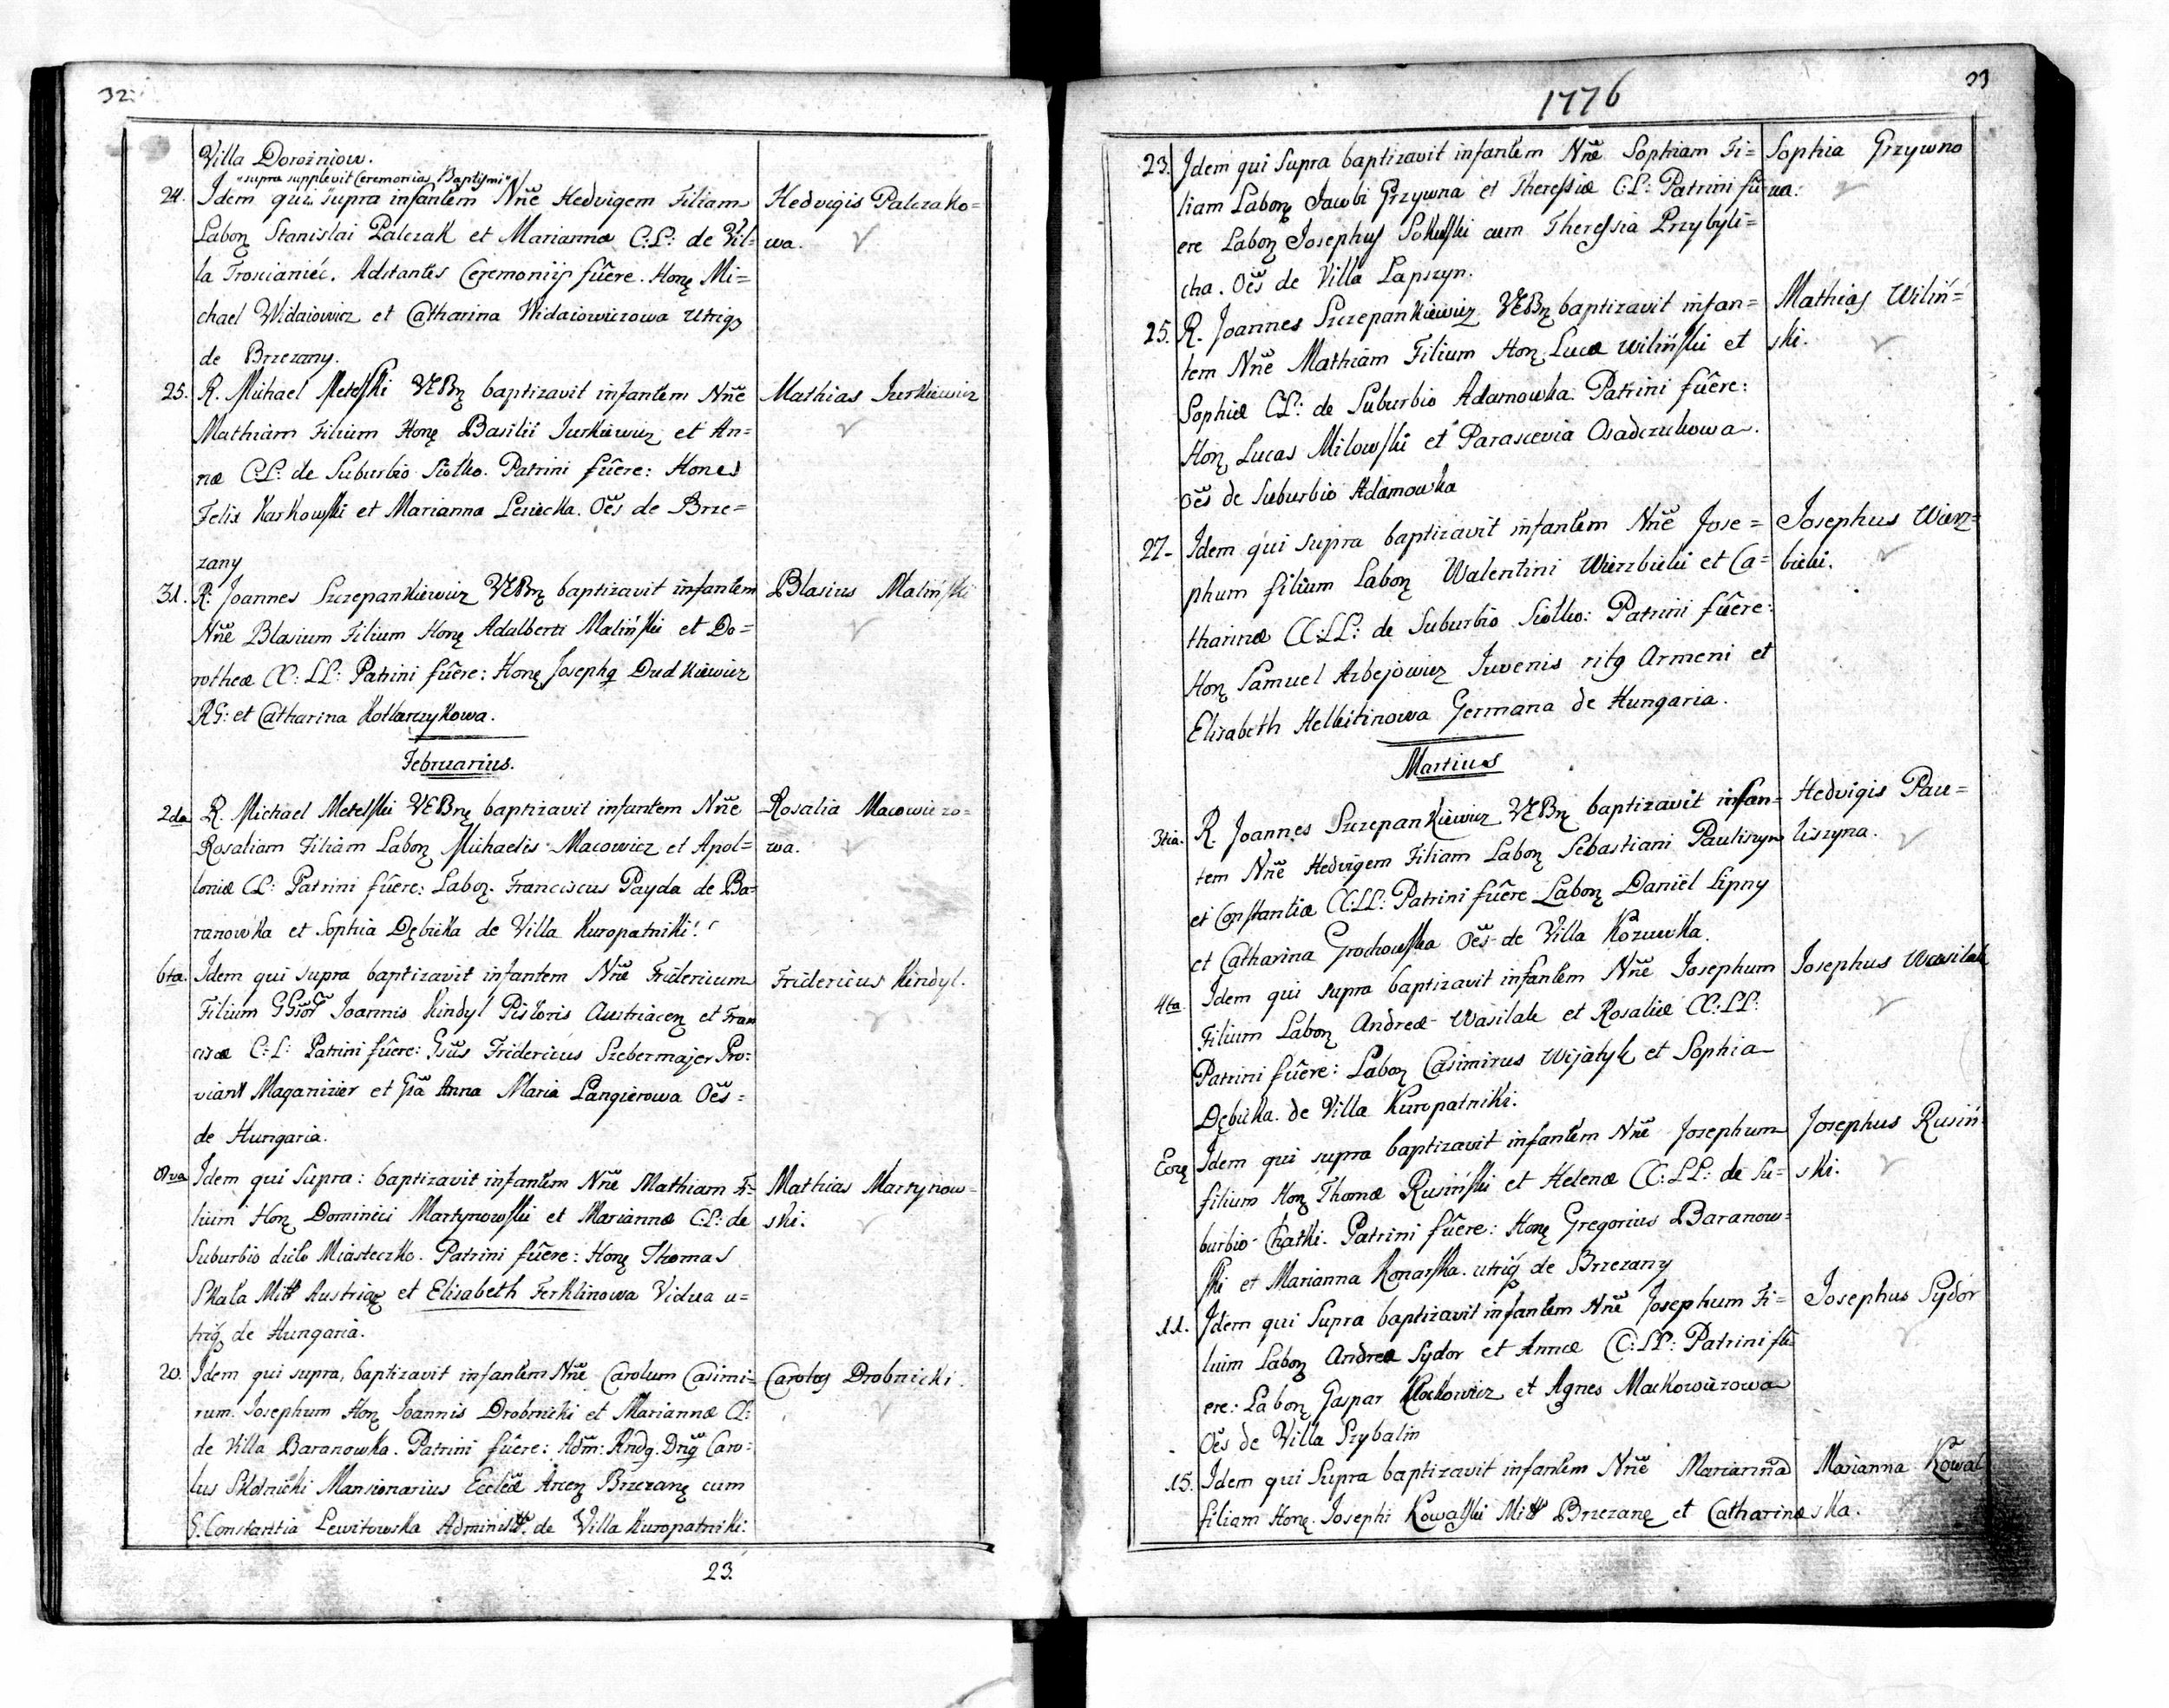 32.
Villa Dorożniow.
"supra supplevit Ceremonias Baptismi"
24. Idem qui "supra infantem Nñe Hedvigem Filiam
Labor Stanislai Palczak et Marianna C:L: de Vil=
la Troscianiéc. Adstantes Ceremoniis fûere. Hone Mi=
chael Widaiowicz et Catharina Widaiowiczowa utriq
de Brzezany.
Hedvigis Palczako=
wa.
25. R. Michael Metelski VEBr baptizavit infantem Nñe
Mathiam Filium Hone Basilii Jurkiewicz et An=
næ C:L: de Suburbio Siołko. Patrini fûere: Hones
Felix Karkowski et Marianna Lesiecka. Oẽs de Brze=
zany
Mathias Jurkiewicz
31. R: Joannes Szczepankiewicz VEBr baptizavit infantem
Nñe Blasium Filium Hone Adalberti Maliński et Do=
rotheæ CC: LL: Patrini fûere: Hone Josephq Dudkiewicz
RG: et Catharina Kotlarczykowa.
Blasius Maliński
Februarius.
2da R. Michael Metelski VEBr baptizavit infantem Nñe
Rosaliam Filiam Labor Michaelis Macowicz et Apol=
loniæ CL: Patrini fûere: Labor. Franciscus Payda de Ba=
ranowka et Sophia Dębicka de Villa Kuropatniki.
Rosalia Macowiczo=
wa.
6ta. Idem qui supra baptizavit infantem Nñe Fridericum
Filium GGsor Joannis Kindyl Pistoris Austriacen et Fran
ciscæ C:L: Patrini fûere: Gsus Fridericus Szebermajer Pro=
viant Maganizier et Gsa Anna Maria Langierowa Oẽs=
de Hungaria.
Fridericus Kindyl.
8va Idem qui Supra: baptizavit infantem Nñe Mathiam Fi=
lium Hon Dominici Martynowski et Mariannæ C:L: de
Suburbio dicto Miasteczko. Patrini fûere: Hone Thomas
Skała Mitt Austriac et Elisabeth Ferklinowa Vidua u=
triq de Hungaria.
Mathias Martynow=
ski.
20. Idem qui supra, baptizavit infantem Nñe Carolum Casimi=
rum. Josephum Hon Joannis Drobnicki et Mariannæ CL:
de Villa Baranowka. Patrini fûere: Adm: Rndq. Dnq Caro=
lus Skotnicki Mansionarius Eccleæ Arcen Brzezane cum
G. Constantia Lewitowska Administ. de Villa Kuropatniki.
Carolq Drobnicki.
23.
1776
33
23. Idem qui Supra baptizavit infantem Nñe Sophiam Fi=
liam Labore Jacobi Grzywna et Theressiæ C:L: Patrini fu
ere Labor Josephus Sokulski cum Theressia Przybyli=
cha. Oẽs de Villa Lapszyn.
Sophia Grzywno
wa.
25. R. Joannes Szczepankiewicz VEBr baptizavit infan=
tem Nñe Mathiam Filium Hon. Lucæ wiliński et
Sophiæ CL: de Suburbio Adamowka. Patrini fûere:
Hon Lucas Milowski et Parascevia Osadczukowa.
oẽs de Suburbio Adamowka
Mathias Wiliń=
ski.
27- Idem qui supra baptizavit infantem Nñe Jose=
phum filium Labor Walentini Wierzbicki et Ca=
tharinæ CC:LL: de Suburbio Siołko: Patrini fûere:
Hon Samuel Arbejowicz Juvenis ritq Armeni et
Elisabeth Helbitinowa Germana de Hungaria.
Josephus Wierz=
bicki.
Martius
3tia. R. Joannes Szczepankiewicz VEBr baptizavit infan=
tem Nñe Hedvigem Filiam Labor Sebastiani Pauliszyn
et Constantiæ CC:LL: Patrini fûere Labor Daniel Lipny
et Catharina Grochowska Oẽs de Villa Kozuwka.
Hedvigis Pau=
liszyna.
4ta. Idem qui supra baptizavit infantem Nñe Josephum
Filium Labor Andreæ Wasilak et Rosaliæ CC:LL:
Patrini fûere: Labor Casimirus Wijatyk et Sophia
Dębicka de Villa Kuropatniki.
Josephus Wasilak
Eore Idem qui supra baptizavit infantem Nñe Josephum
filium Hon Thomæ Rusiński et Helenæ CC:LL: de Su=
burbio Chatki. Patrini fûere: Hone Gregorius Baranow=
ski et Marianna Konarska. utriq de Brzezany
Josephus Rusiń
ski.
11. Idem qui Supra baptizavit infantem Nñe Josephum Fi=
lium Labor Andreæ Sydor et Annæ CC:LL: Patrini fu
ere: Labor Gaspar Mackowicz et Agnes Mackowiczowa
Oẽs de Villa Szybalin
Josephus Sydor
15. Idem qui Supra baptizavit infantem Nñe Marianna
filiam Hone. Josephi Kowalski Mitt Brzezane et Catharinæ
Marianna Kowal
ska.